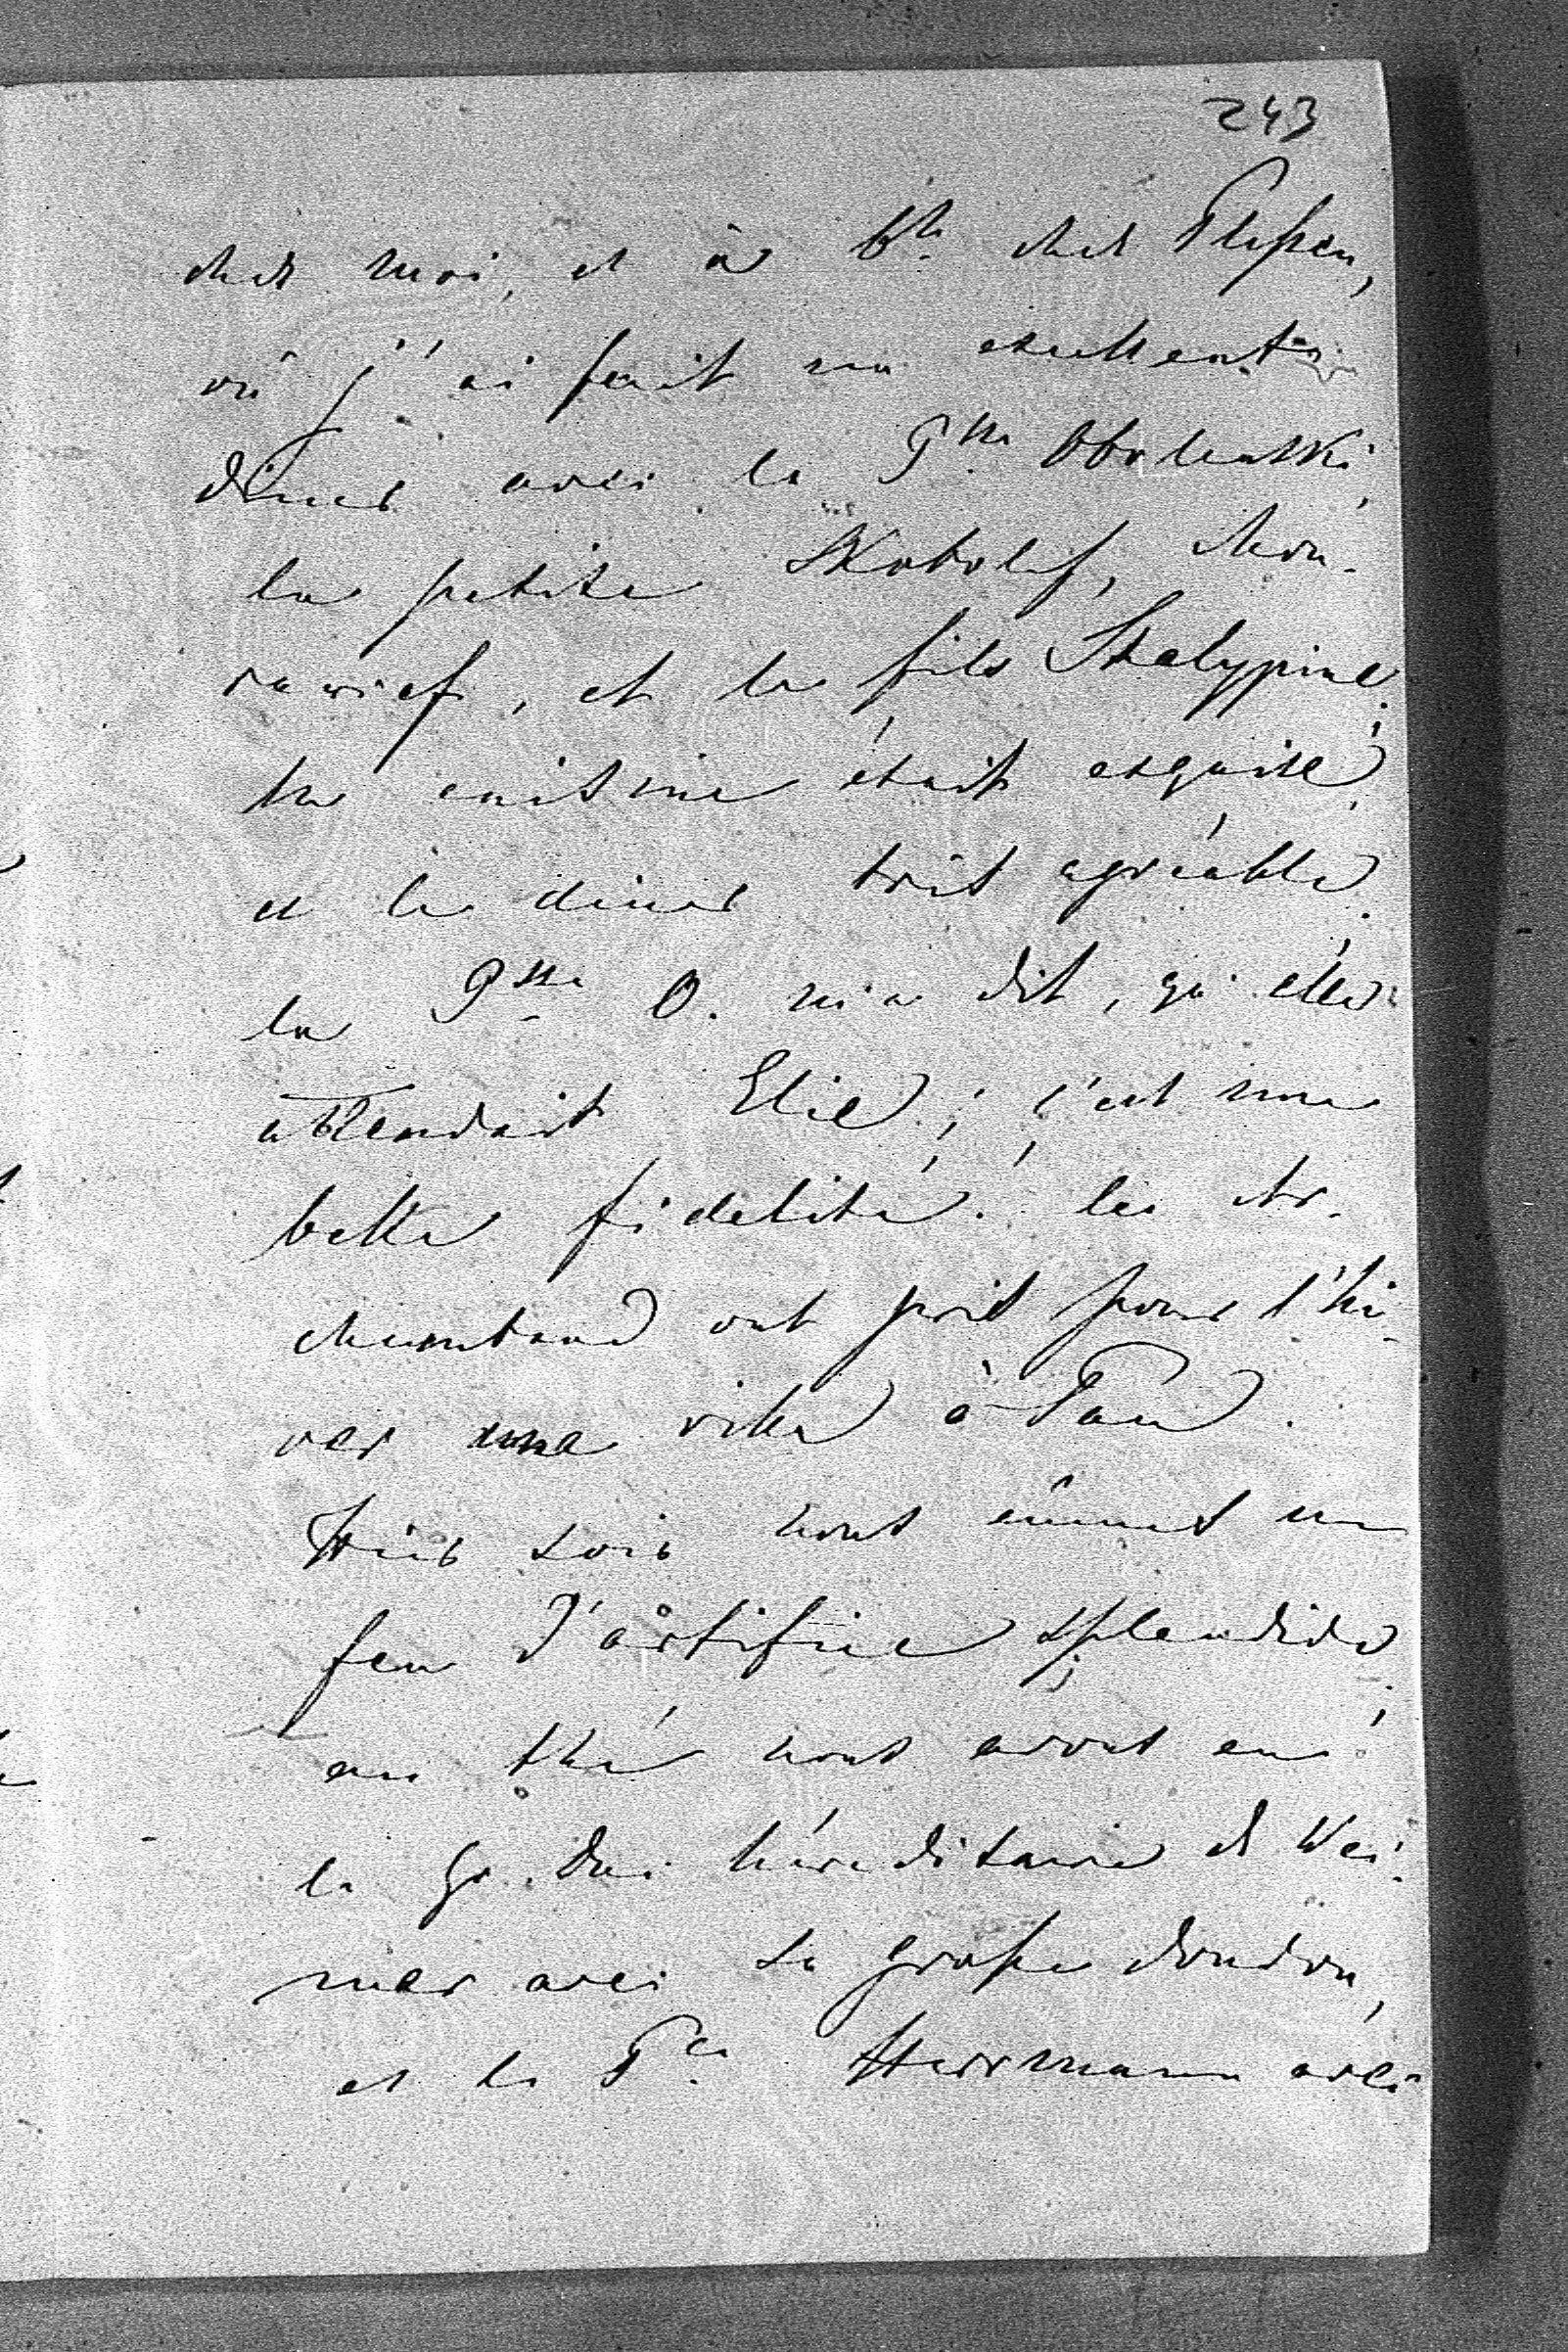 243
chez moi, et à 6h. chez Plessen,
où j'ai fait un excellent
diner avec la Psse Obolenski,
la petite Skobelef, Mou-
rawief, et le fils Stalypine;
la cuisine était exquise,
et le diner très agréable.
la Psse O. m'a dit, qu'elle
attendait Elie; c'est une
belle fidelité! les Ar-
chambaud ont pris pour l'hi-
ver une villa à Pau.
Hier soir nous eûmes un
feu d'artifice splendide,
au thé nous avons eu
le Gr. Duc héreditaire de Wei-
mar avec sa grosse dondon,
et le Pce Herrmann avec